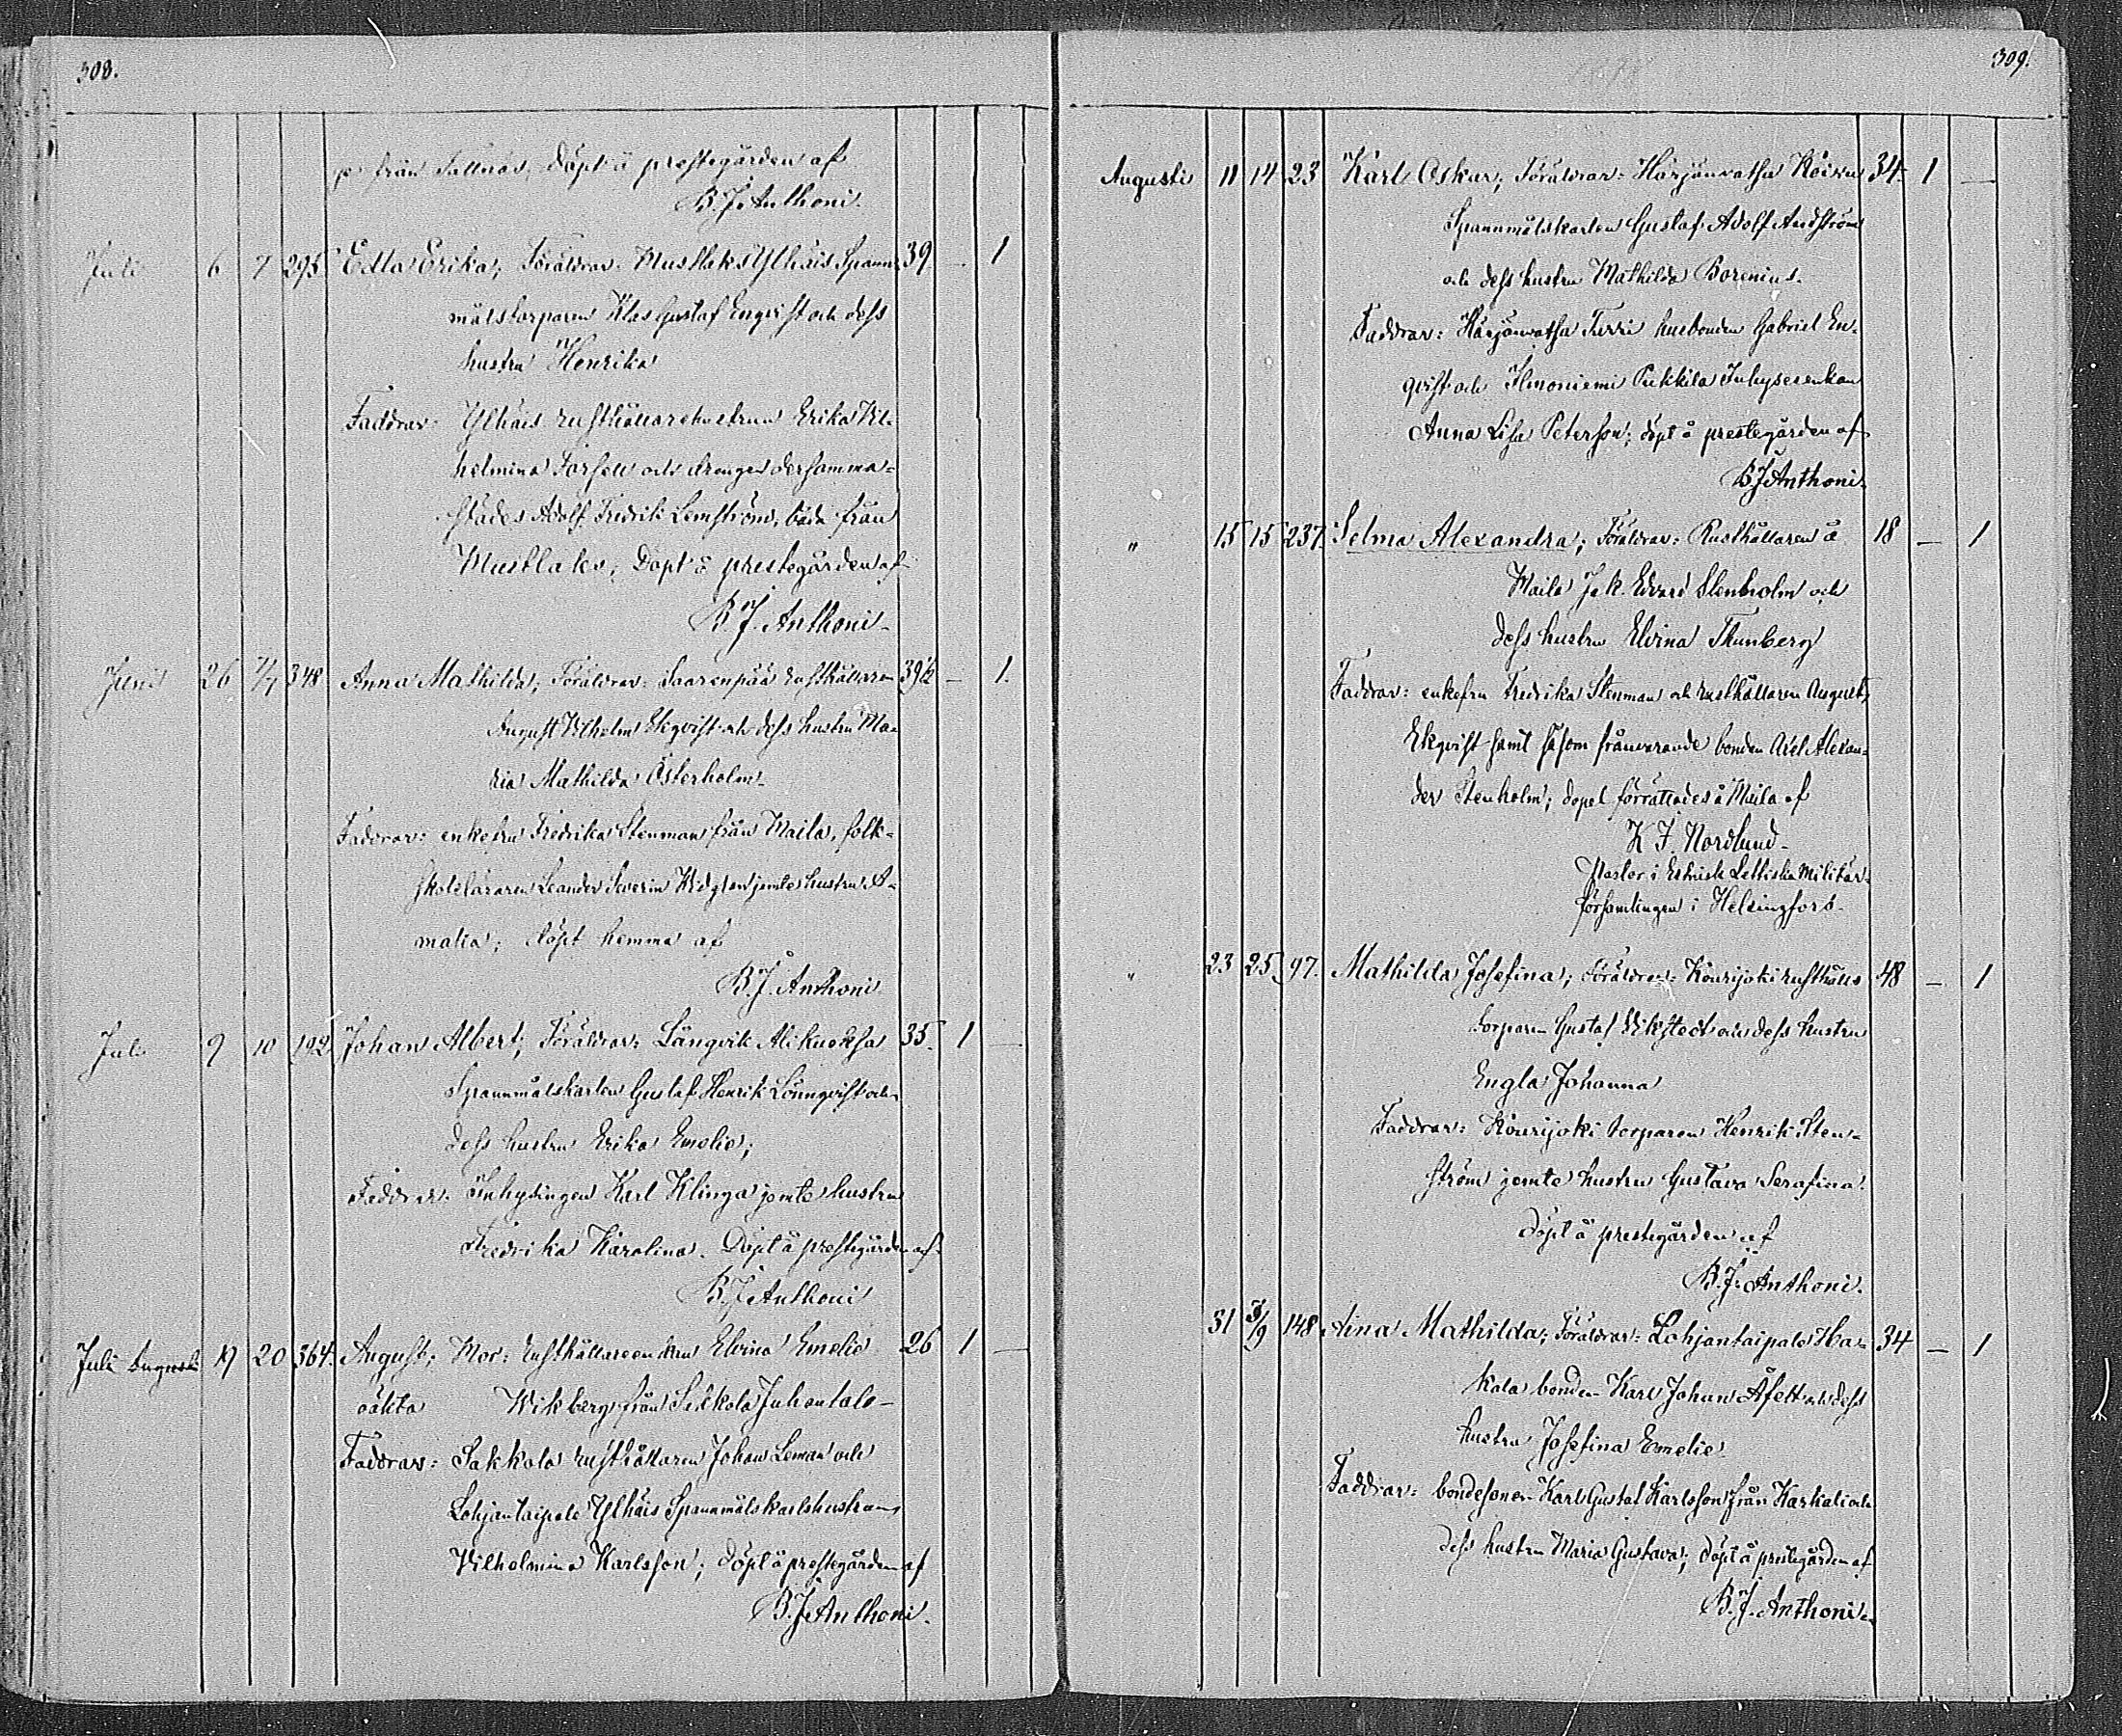 308.
från Sallnäs, döpt å prestegården af
B. J. Anthoni.
Juli 6 7 295. Edla Erika; Föräldrar: Mustlaks Ylhäis Spann- 39 — 1
målstorparen Klas Gustaf Engvist och dess
hustru Henrika
Faddrar: Ylhäis rusthållarehustrun Erika Vil-
helmina Forsell och drengen dersamma-
städes Adolf Fredrik Lemström, båda från
Mustlaks; Döpt å prestegården af
B. J. Anthoni
Juni 26 7/7 348 Anna Mathilda; Föräldrar: Saarenpää rusthållaren 39 1/2 — 1.
August Vilhelm Ekqvist och dess hustru Ma-
ria Mathilda Österholm.
Faddrar: enkefru Fredrika Stenman från Maila, folk-
skoleläraren Leander Severin Widgren jemte hustru A-
malia; döpt hemma af
B. J. Anthoni
Juli 9 10 192. Johan Albert; Föräldrar: Långvik Alikuoksa 35. 1 —
Spannmålskarlen Gustaf Henrik Lönnqvist och
dess hustru Erika Emelie;
Faddrar: Inhysingen Karl Klinga jemte hustru
Fredrika Karolina. Döpt å prestegården af
B. J. Anthoni
Juli Augusti 19 20 364. August; Mor: Rusthållareenkan Elvina Emelie 26 1 —
oäkta Wikberg från Sakkola Juhontalo —
Faddrar: Sakkola rusthållaren Johan Leman och
Lohjantaipale Ylhäis Spannmålskarlshustrun
Vilhelmina Karlsson; döpt å prestegården af
B. J. Anthoni.
309.
Augusti 11 14 23 Karl Oskar; Föräldrar: Härjänvatsa Koivu 34. 1 —
Spannmålskarlen Gustaf Adolf Andström
och dess hustru Mathilda Borenius.
Faddrar: Härjänvatsa Turri husbonden Gabriel En-
qvist och Ilmoniemi Pukkila Inhysesenkan
Anna Lisa Peterson; döpt å prestegården af
B J Anthoni.
" 15 15 237. Selma Alexandra; Föräldrar: Rusthållaren å 18 — 1
Maila Jak. Edvard Stenholm och
dess hustru Elvina Thunberg
Faddrar: enkefru Fredrika Stenman och rusthållaren August
Ekqvist samt såsom frånvarande bonden Axel Alexan-
der Stenholm; dopet förrättades å Maila af
K F. Nordlund.
Pastor i Estnisk Lettiska Militär-
församlingen i Helsingfors.
" 23 25 97. Mathilda Josefina; Föräldrar: Kourijoki rusthålls 48 — 1
torparen Gustaf Vikstedt och dess hustru
Engla Johanna
Faddrar: Kourijoki torparen Henrik Sten-
ström jemte hustru Gustava Serafina.
Döpt å prestegården af
B. J. Anthoni.
31 3/9 148 Aina Mathilda; Föräldrar: Lohjantaipale Ha- 34 — 1
kala bonden Karl Johan Åfelt och dess
hustru Josefina Emelie.
Faddrar: bondesonen Karl Gustaf Karlsson från Karkali och
dess hustru Maria Gustava; döpt å prestegården af
B. J. Anthoni.